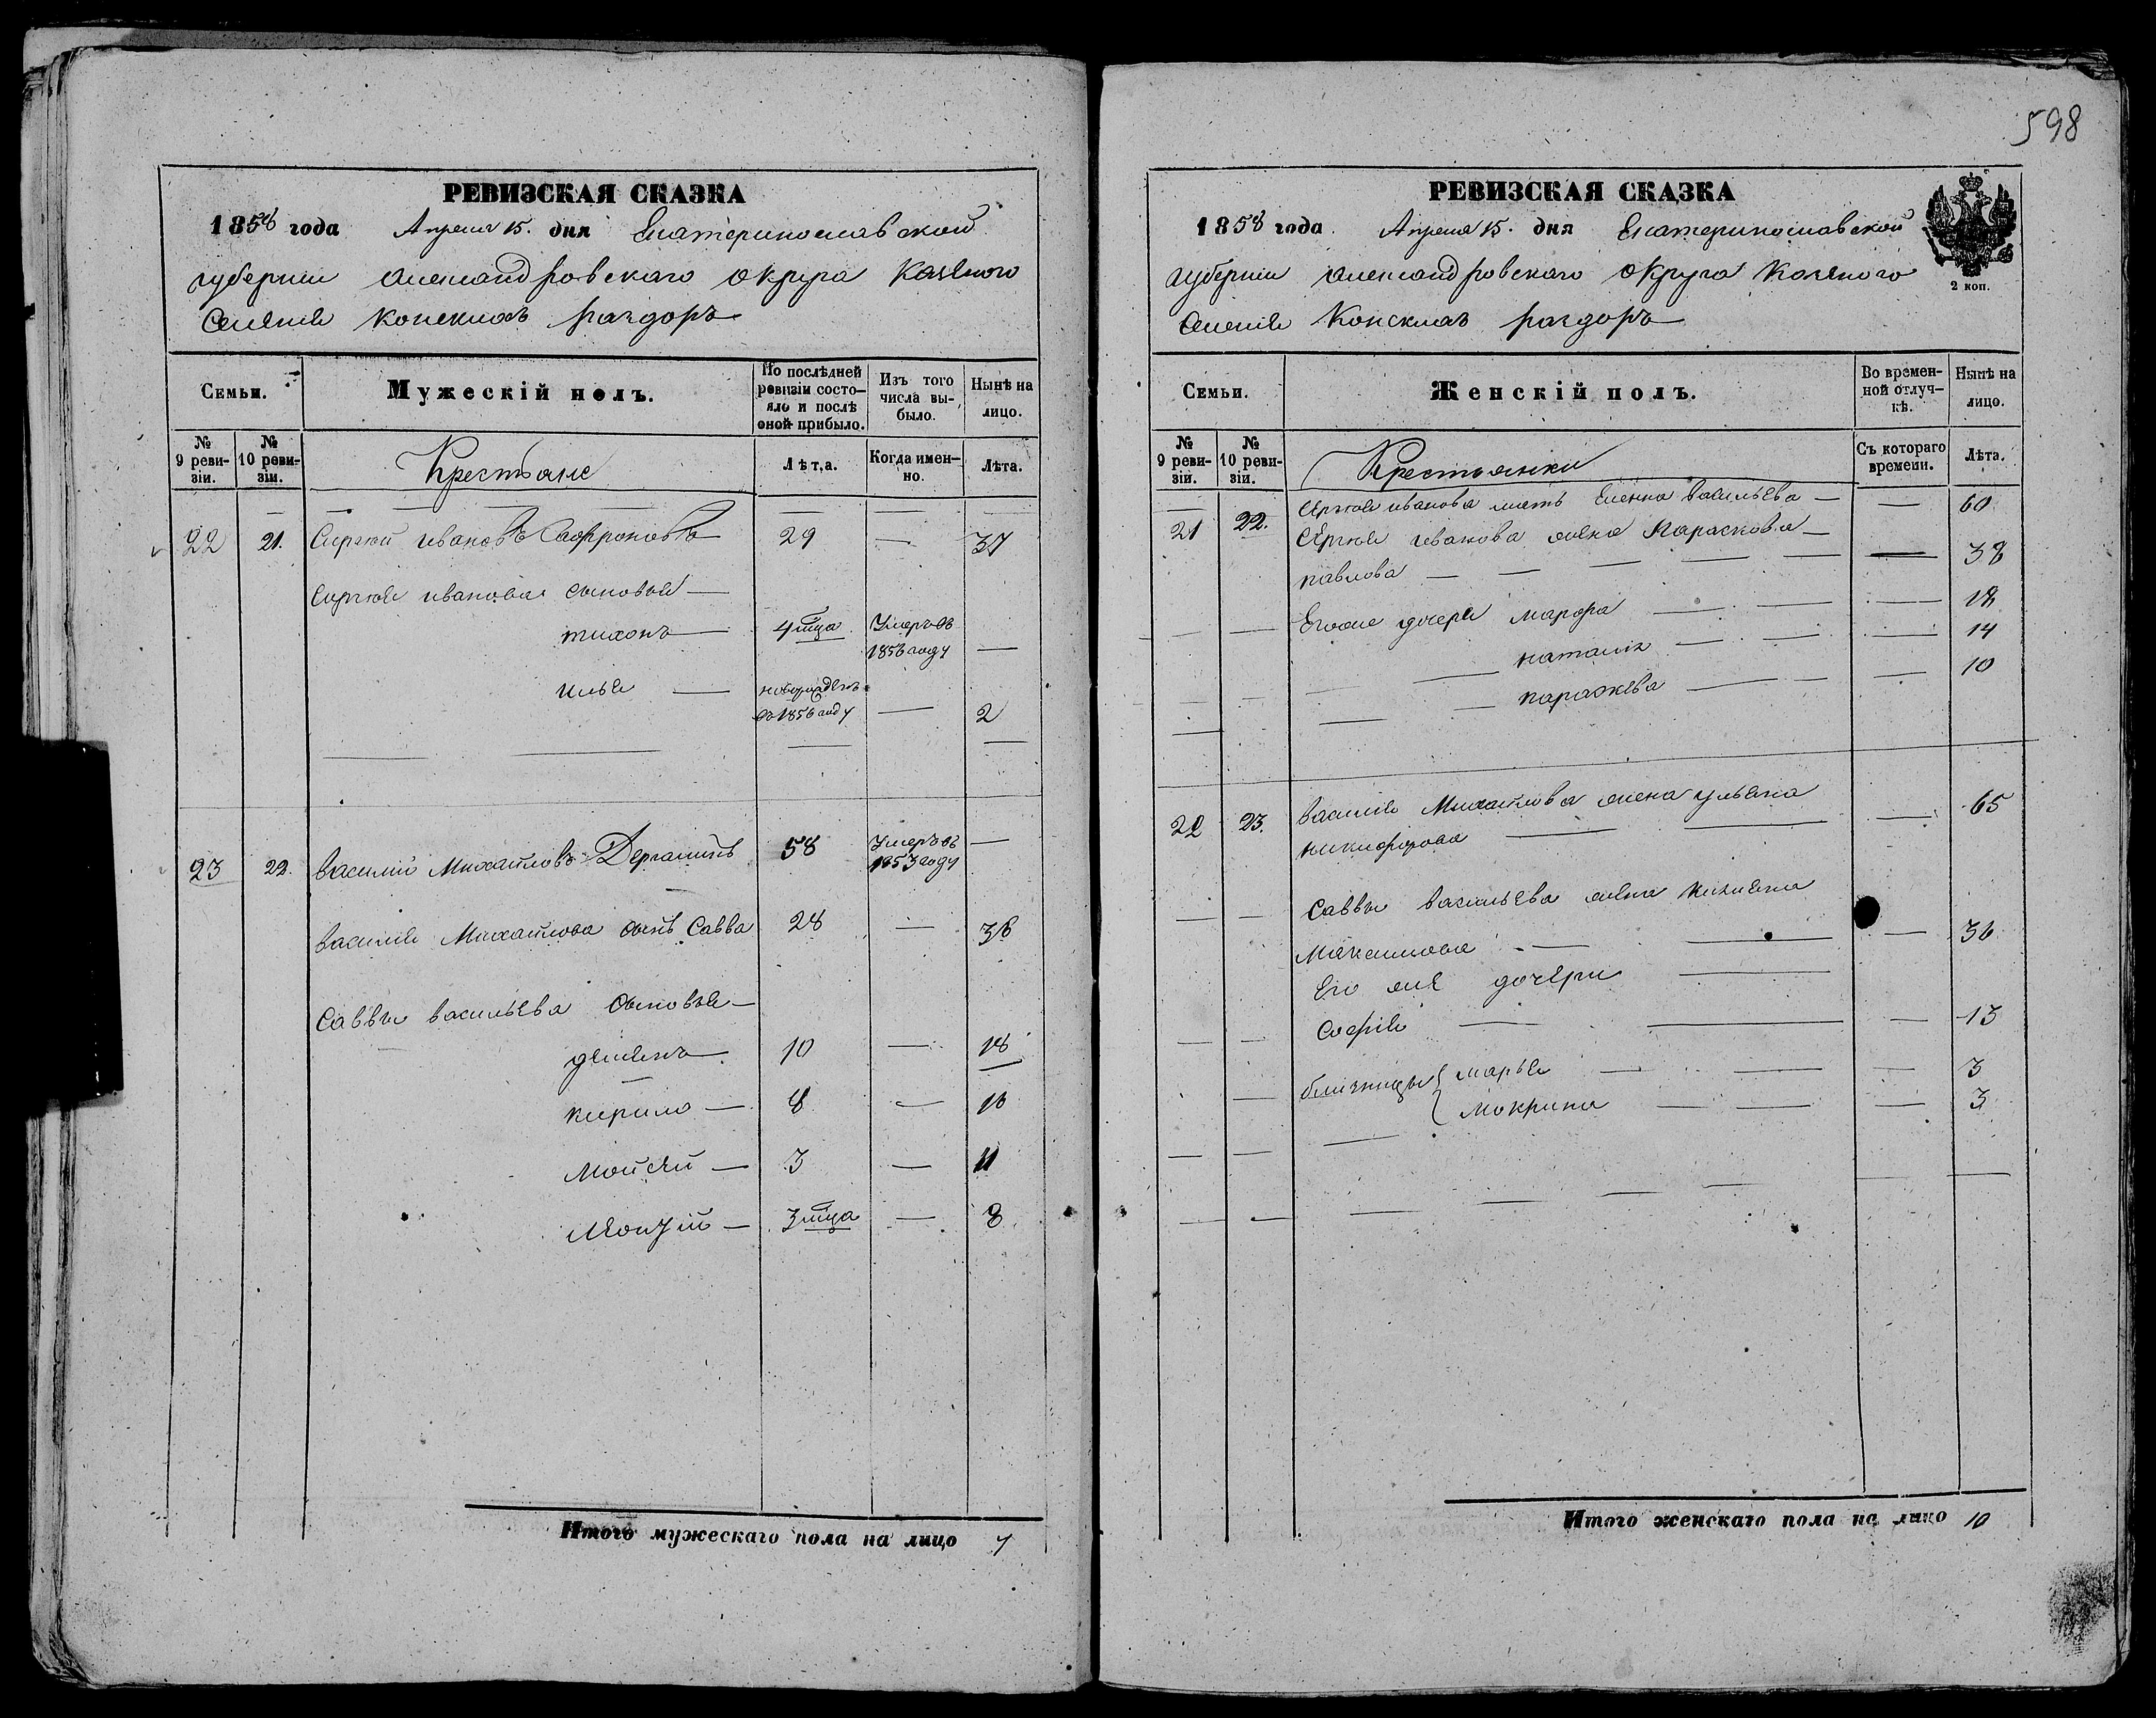 598
РЕВИЗСКАЯ СКАЗКА
1858 года Апреля 15. дня Екатеринославской
губернии Александровскаго округа Казенаго
Селенія Конскихъ раздоръ
Семьи.
Мужескій полъ.
По послѣдней ревизіи состояло и послѣ оной прибыло.
Изъ того числа выбыло.
Нынѣ на лицо.
№ 9 ревизіи.
№ 10 ревизіи.
Крестьяне
Лѣта.
Когда именно.
Лѣта.
22 21. Сергей Ивановъ Сафроновъ 29 — 37
Сергея Иванова сыновья —
тихонъ — 4 мца Умеръ въ 1856 году —
илья — новорожденъ въ 1856 году — 2
23 22. Василий Михайловъ Дергачевъ 58 Умеръ въ 1853 году —
Василия Михайлова сынъ Савва 28 — 36
Саввы васильева сыновья —
демьянъ — 10 — 18
кирило — 8 — 16
Мойсей — 3 — 11
3 мца — 8
Итого мужескаго пола на лицо 7
РЕВИЗСКАЯ СКАЗКА
1858 года Апреля 15. дня Екатеринославской
губерніи Александровскаго округа Казенаго
Селенія Конскихъ раздоръ
2 коп.
Семьи.
Женскій полъ.
Во временной отлучкѣ.
Нынѣ на лицо.
№ 9 ревизіи.
№ 10 ревизіи.
Крестьянки
Съ котораго времени.
Лѣта.
Сергея иванова мать Еленна васильева — — 60
21 22. Сергея иванова жена Парасковья —
павлова — — 38
Егоже дочери марфа — — 18
наталія — — 14
параскева — — 10
22 23. Василія Михайлова жена ульяна
никифорова — — 65
Саввы васильева жена
Максимова — — 36
Его же дочери —
Софія — — 13
близницы { марья — — 3
Мокрина — — 3
Итого женскаго пола на лицо 10